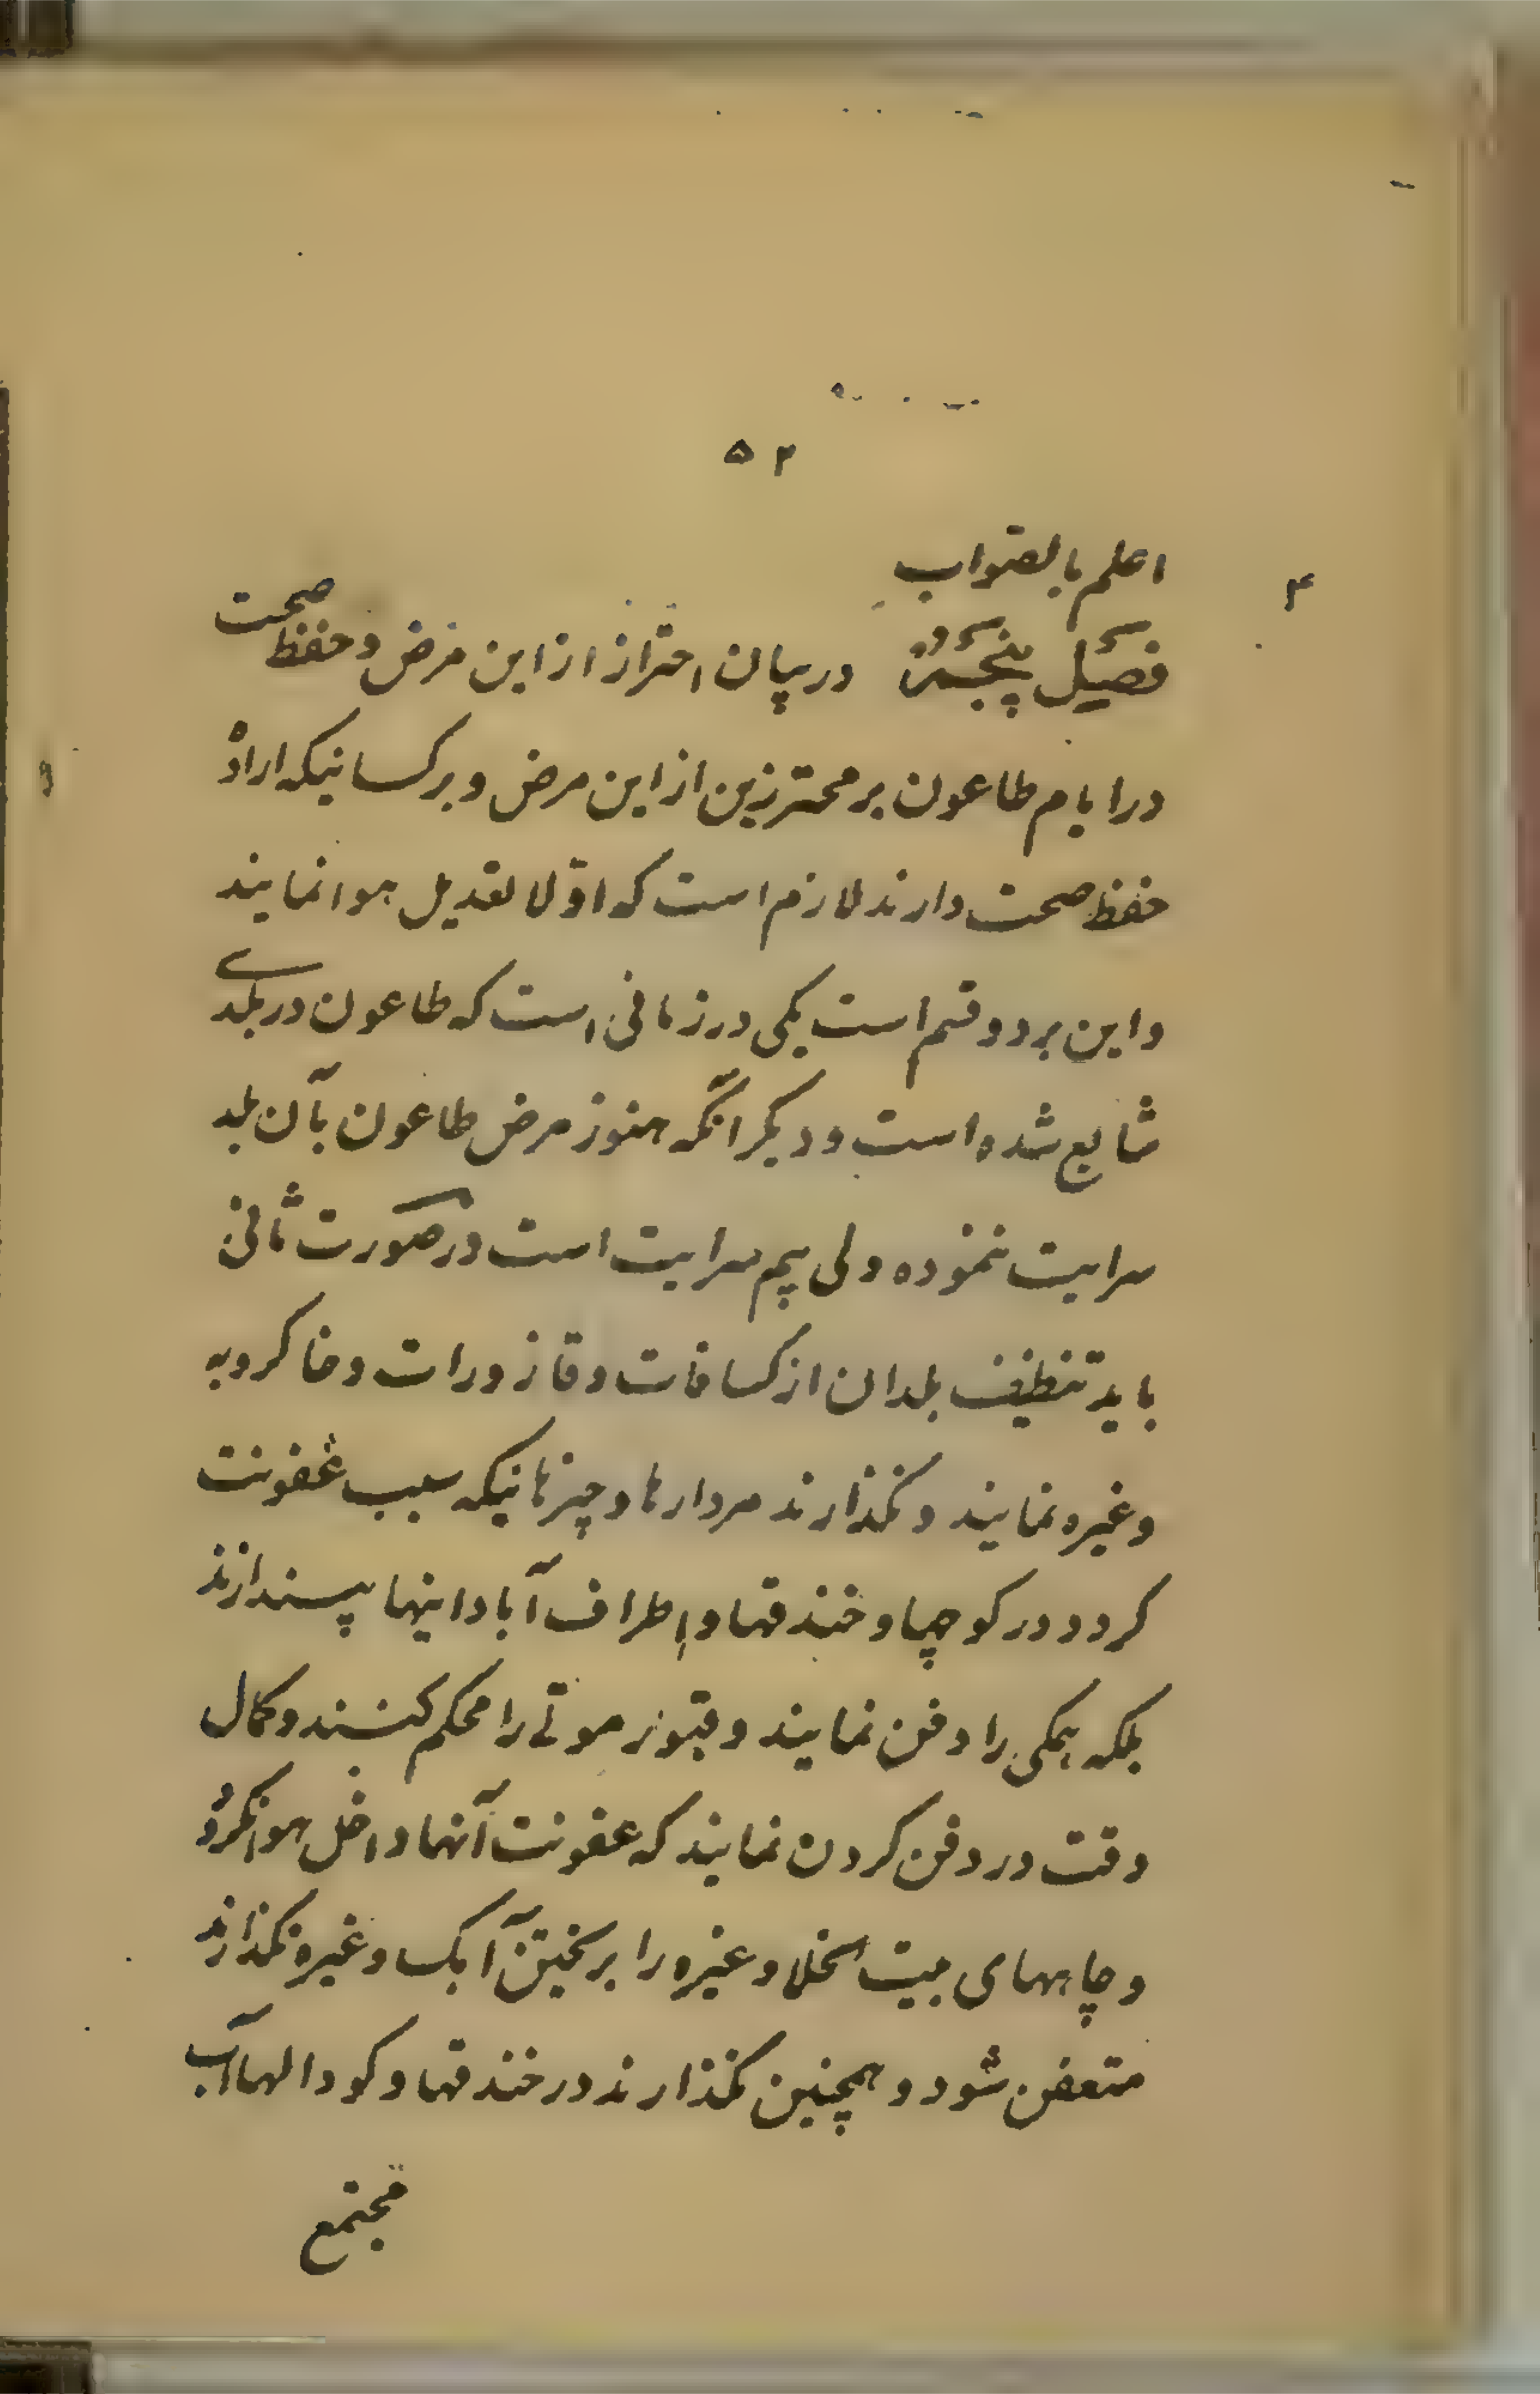 ۵۲
اعلم بالصواب
۴
فصل پنجم در بیان احتراز از این مرض و حفظ صحت
در ایام طاعون بر محترزین از این مرض و بر کسانیکه اراده
حفظ صحت دارند لازم است که اولا تعدیل هوا نمایند
و این بر دو قسم است یکی در زمانی است که طاعون در بلدی
شایع شده است و دیگر آنکه هنوز مرض طاعون بآن بلد
سرایت ننموده ولی بیم سرایت است در صورت ثانی
باید تنظیف بلدان از کسافات و قازورات و خاکروبه
و غیره نمایند و نگذارند مردارها و چیزهائیکه سبب عفونت
گردد در کوچها و خندقها و اطراف آبادانیها بیندازند
بلکه همگی را دفن نمایند و قبور موتی را محکم کنند و کمال
دقت در دفن کردن نمایند که عفونت آنها داخل هوا نگردد
و چاههای بیت الخلا و غیره را بریختن آهک و غیره نگذارند
متعفن شود و همچنین نگذارند در خندقها و کودالها آب
مجتمع